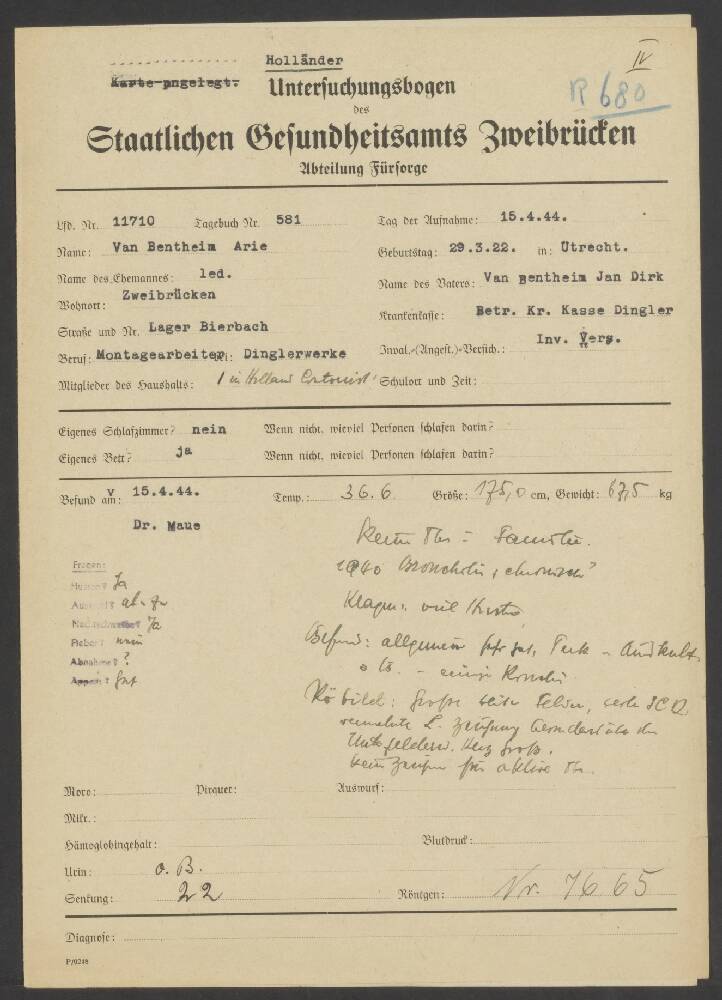 Holländer
IV
Karte angelegt.
Untersuchungsbogen
R 680
des
Staatlichen Gesundheitsamts Zweibrücken
Abteilung Fürsorge
Lfd. Nr. 11710 Tagebuch Nr. 581 Tag der Aufnahme: 15.4.44.
Name: Van Bentheim Arie Geburtstag: 29.3.22. in: Utrecht.
Name des Ehemannes: led. Name des Vaters: Van Bentheim Jan Dirk
Wohnort: Zweibrücken Krankenkasse: Betr. Kr. Kasse Dingler
Straße und Nr. Lager Bierbach
Beruf: Montagearbeiter bei: Dinglerwerke Inval.-(Angest.)-Versich.: Inv. Vers.
Mitglieder des Haushalts: 1 in Holland Schulort und Zeit:
Eigenes Schlafzimmer? nein Wenn nicht, wieviel Personen schlafen darin?
Eigenes Bett? ja Wenn nicht, wieviel Personen schlafen darin?
Befund am: 15.4.44. Temp.: 36.6 Größe: 175,0 cm, Gewicht: 67,5 kg
Dr. Maue
Fragen:
Husten? Ja
Auswurf? ab u. zu
Nachtschweiß? Ja
Fieber? nein
Abnahme? ?
Appetit? gut
Keine Tbc in Familie.
1940 Bronchitis, chronisch?
Klagen: viel Husten
Befund: allgemein sehr gut, Perk. - Auskult.
Rö bild: Große
Herz groß.
kein Zeichen für aktive Tbc.
Moro: Pirquet: Auswurf:
Mikr.:
Hämoglobingehalt: Blutdruck:
Urin: o. B.
Senkung: 22 Röntgen: Nr. 7665
Diagnose:
P/0248